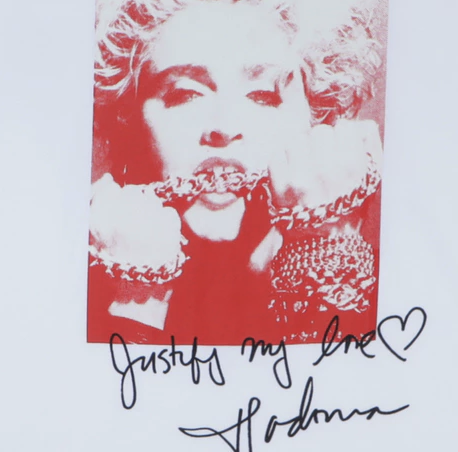 Justify my love♡
Madonna